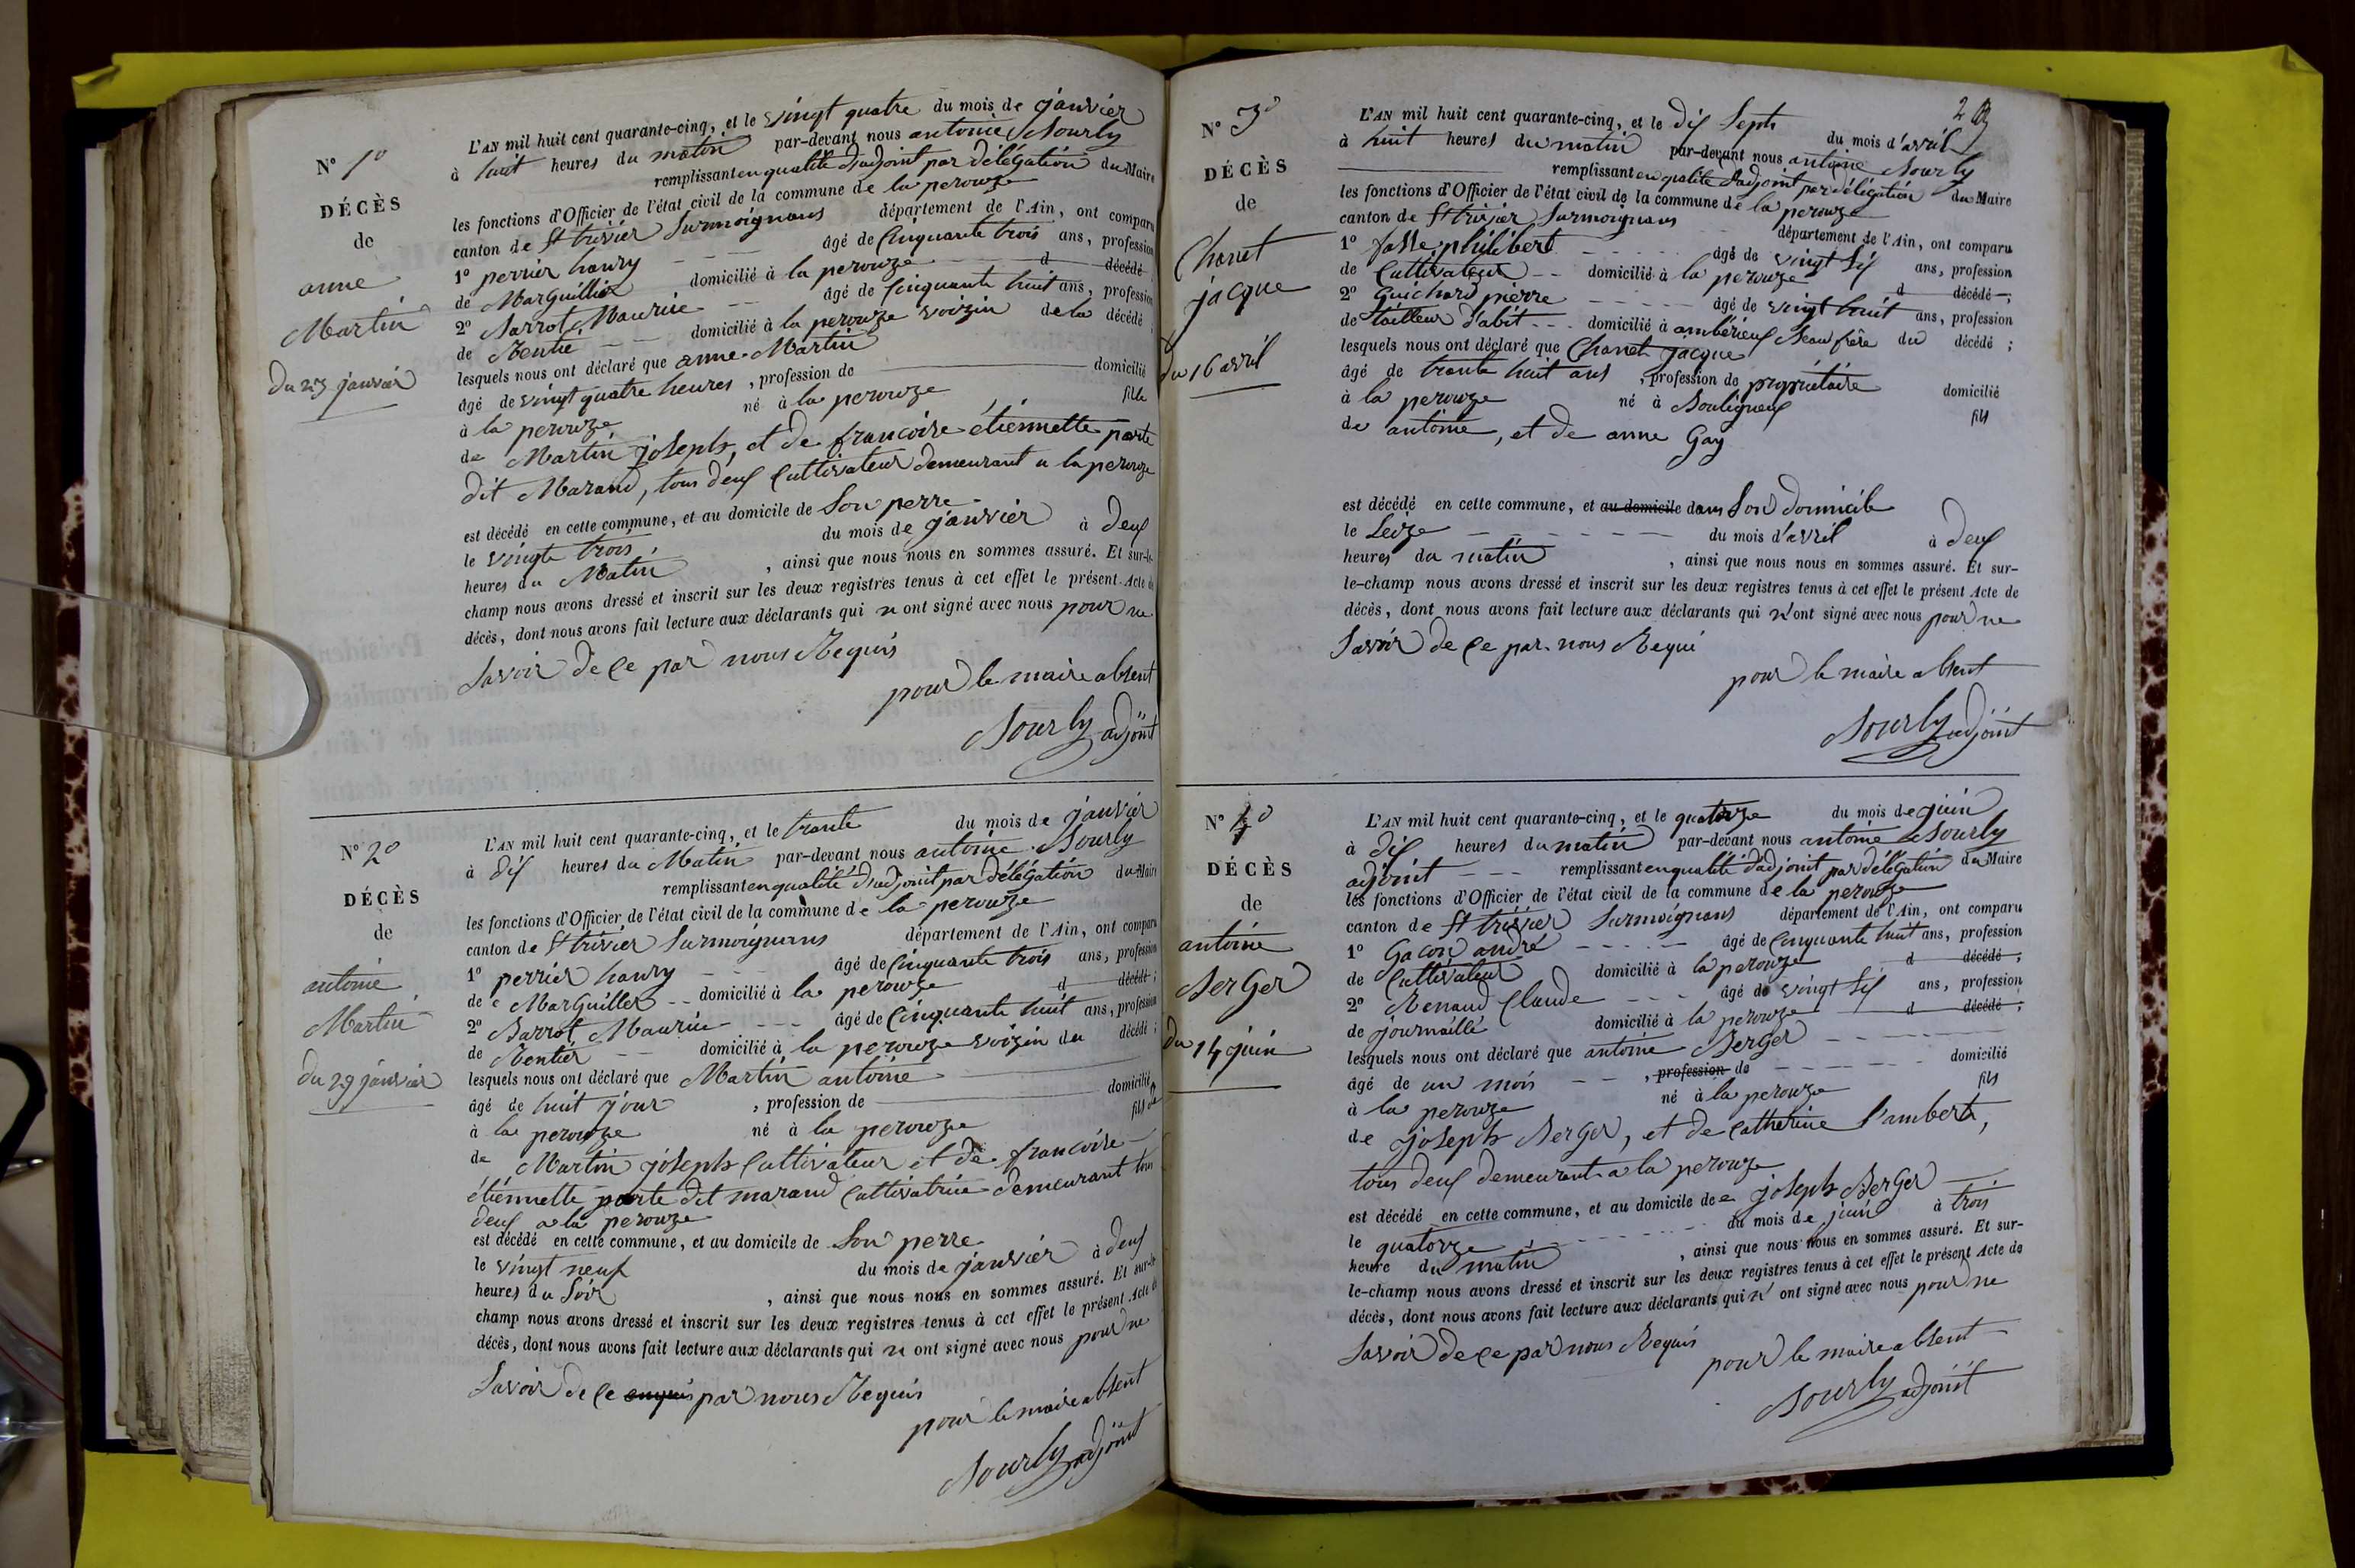 N° 1°
DÉCÈS
de
anne
Martin
du 23 janvier
L'AN mil huit cent quarante-cinq, et le vingt quatre du mois de janvier
à huit heures du matin par-devant nous antoine Bourly
remplissant en qualité d'adjoint par délégation du Maire
les fonctions d'Officier de l'état civil de la commune de la perouze
canton de St trivier Surmoignans département de l'Ain, ont comparu
1° perrier hanry âgé de Cinquante trois ans, profession
de MarGuillier domicilié à la perouze d décédé ;
2° Barrot Maurice âgé de Cinquante huit ans, profession
de Rentie domicilié à la perouze voizin de la décédé ;
lesquels nous ont déclaré que anne Martin
âgé de vingt quatre heures , profession de domicilié
à la perouze né à la perouze fille
de Martin joseph, et de francoise étiennette porte
dit Marand, tous deux Cultivateur demeurant a la perouze
est décédé en cette commune, et au domicile de Son perre
le vingte trois du mois de janvier à deux
heures du Matin , ainsi que nous nous en sommes assuré. Et sur-le-
champ nous avons dressé et inscrit sur les deux registres tenus à cet effet le présent Acte de
décès, dont nous avons fait lecture aux déclarants qui n ont signé avec nous pour ne
Savoir de Ce par nous Requis
pour le maire absent
Bourly adjoint
N° 2°
DÉCÈS
de
antoine
Martin
du 29 janvier
L'AN mil huit cent quarante-cinq, et le trante du mois de janvier
à dix heures du Matin par-devant nous antoine Bourly
remplissant en qualité d'adjoint par délégation du Maire
les fonctions d'Officier de l'état civil de la commune de la perouze
canton de St trivier Surmoignans département de l'Ain, ont comparu
1° perrier hanry âgé de Cinquante trois ans, profession
de MarGuiller domicilié à la perouze d décédé ;
2° Barrot Maurice âgé de Cinquante huit ans, profession
de Rentier domicilié à la perouze voizin du décédé ;
lesquels nous ont déclaré que Martin antoine
âgé de huit jour , profession de domicilié
à la perouze né à la perouze fils de
de Martin joseph Cultivateur et de francoise
étiennette porte dit marand Cultivatrice demeurant tous
deux a la perouze
est décédé en cette commune, et au domicile de Son perre
le vingt neuf du mois de janvier à deux
heures du Soir , ainsi que nous nous en sommes assuré. Et sur-le-
champ nous avons dressé et inscrit sur les deux registres tenus à cet effet le présent Acte de
décès, dont nous avons fait lecture aux déclarants qui n ont signé avec nous pour ne
Savoir de Ce par nous Requis
pour le maire absent
Bourly adjoint
N° 3°
DÉCÈS
de
Chanet
jacque
du 16 avril
L'AN mil huit cent quarante-cinq, et le dix Septs du mois d'avril
à huit heures du matin par-devant nous antoine Bourly
remplissant en qualité d'adjoint par délégation du Maire
les fonctions d'Officier de l'état civil de la commune de la perouze
canton de St trivier Surmoignans département de l'Ain, ont comparu
1° fasse philibert âgé de vingt Six ans, profession
de Cultivateur domicilié à la perouze d décédé ;
2° Guichard pierre âgé de vingt huit ans, profession
de tailleur d'abit domicilié à ambérieux Beau frère du décédé ;
lesquels nous ont déclaré que Chanet jacque
âgé de trante huit ans , profession de propriétaire domicilié
à la perouze né à Bouligneux fils
de antoine, et de anne Gay
est décédé en cette commune, et au domicile dans Son domicile
le Seize du mois d'avril à deux
heures du matin , ainsi que nous nous en sommes assuré. Et sur-
le-champ nous avons dressé et inscrit sur les deux registres tenus à cet effet le présent Acte de
décès, dont nous avons fait lecture aux déclarants qui n'ont signé avec nous pour ne
Savoir de Ce par nous Requi
pour le maire absent
Bourly adjoint
N° 4°
DÉCÈS
de
antoine
BerGer
du 14 juin
L'AN mil huit cent quarante-cinq, et le quatorze du mois de juin
à dix heures du matin par-devant nous antoine Bourly
adjoint remplissant en qualité d'adjoint par délégation du Maire
les fonctions d'Officier de l'état civil de la commune de la perouze
canton de St trivier Surmoignans département de l'Ain, ont comparu
1° Gacon andré âgé de Cinquante huit ans, profession
de Cultivateur domicilié à la perouze d décédé ;
2° Renaud Claude âgé de vingt Six ans, profession
de journaillé domicilié à la perouze d décédé ;
lesquels nous ont déclaré que antoine BerGer
âgé de un mois , profession de domicilié
à la perouze né à la perouze fils
de joseph BerGer, et de Catherine Lambert,
tous deux demeurant a la perouze
est décédé en cette commune, et au domicile de joseph BerGer
le quatorze du mois de juin à trois
heure du matin , ainsi que nous nous en sommes assuré. Et sur-
le-champ nous avons dressé et inscrit sur les deux registres tenus à cet effet le présent Acte de
décès, dont nous avons fait lecture aux déclarants qui n' ont signé avec nous pour ne
Savoir de Ce par nous Requis
pour le maire absent
Bourly adjoint